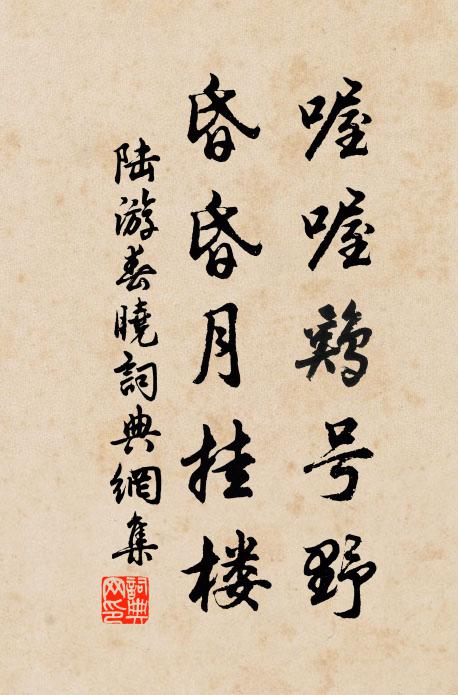 喔喔鷄号野
昏昏月挂楼
陆游春曉詞典網集
詞典网印